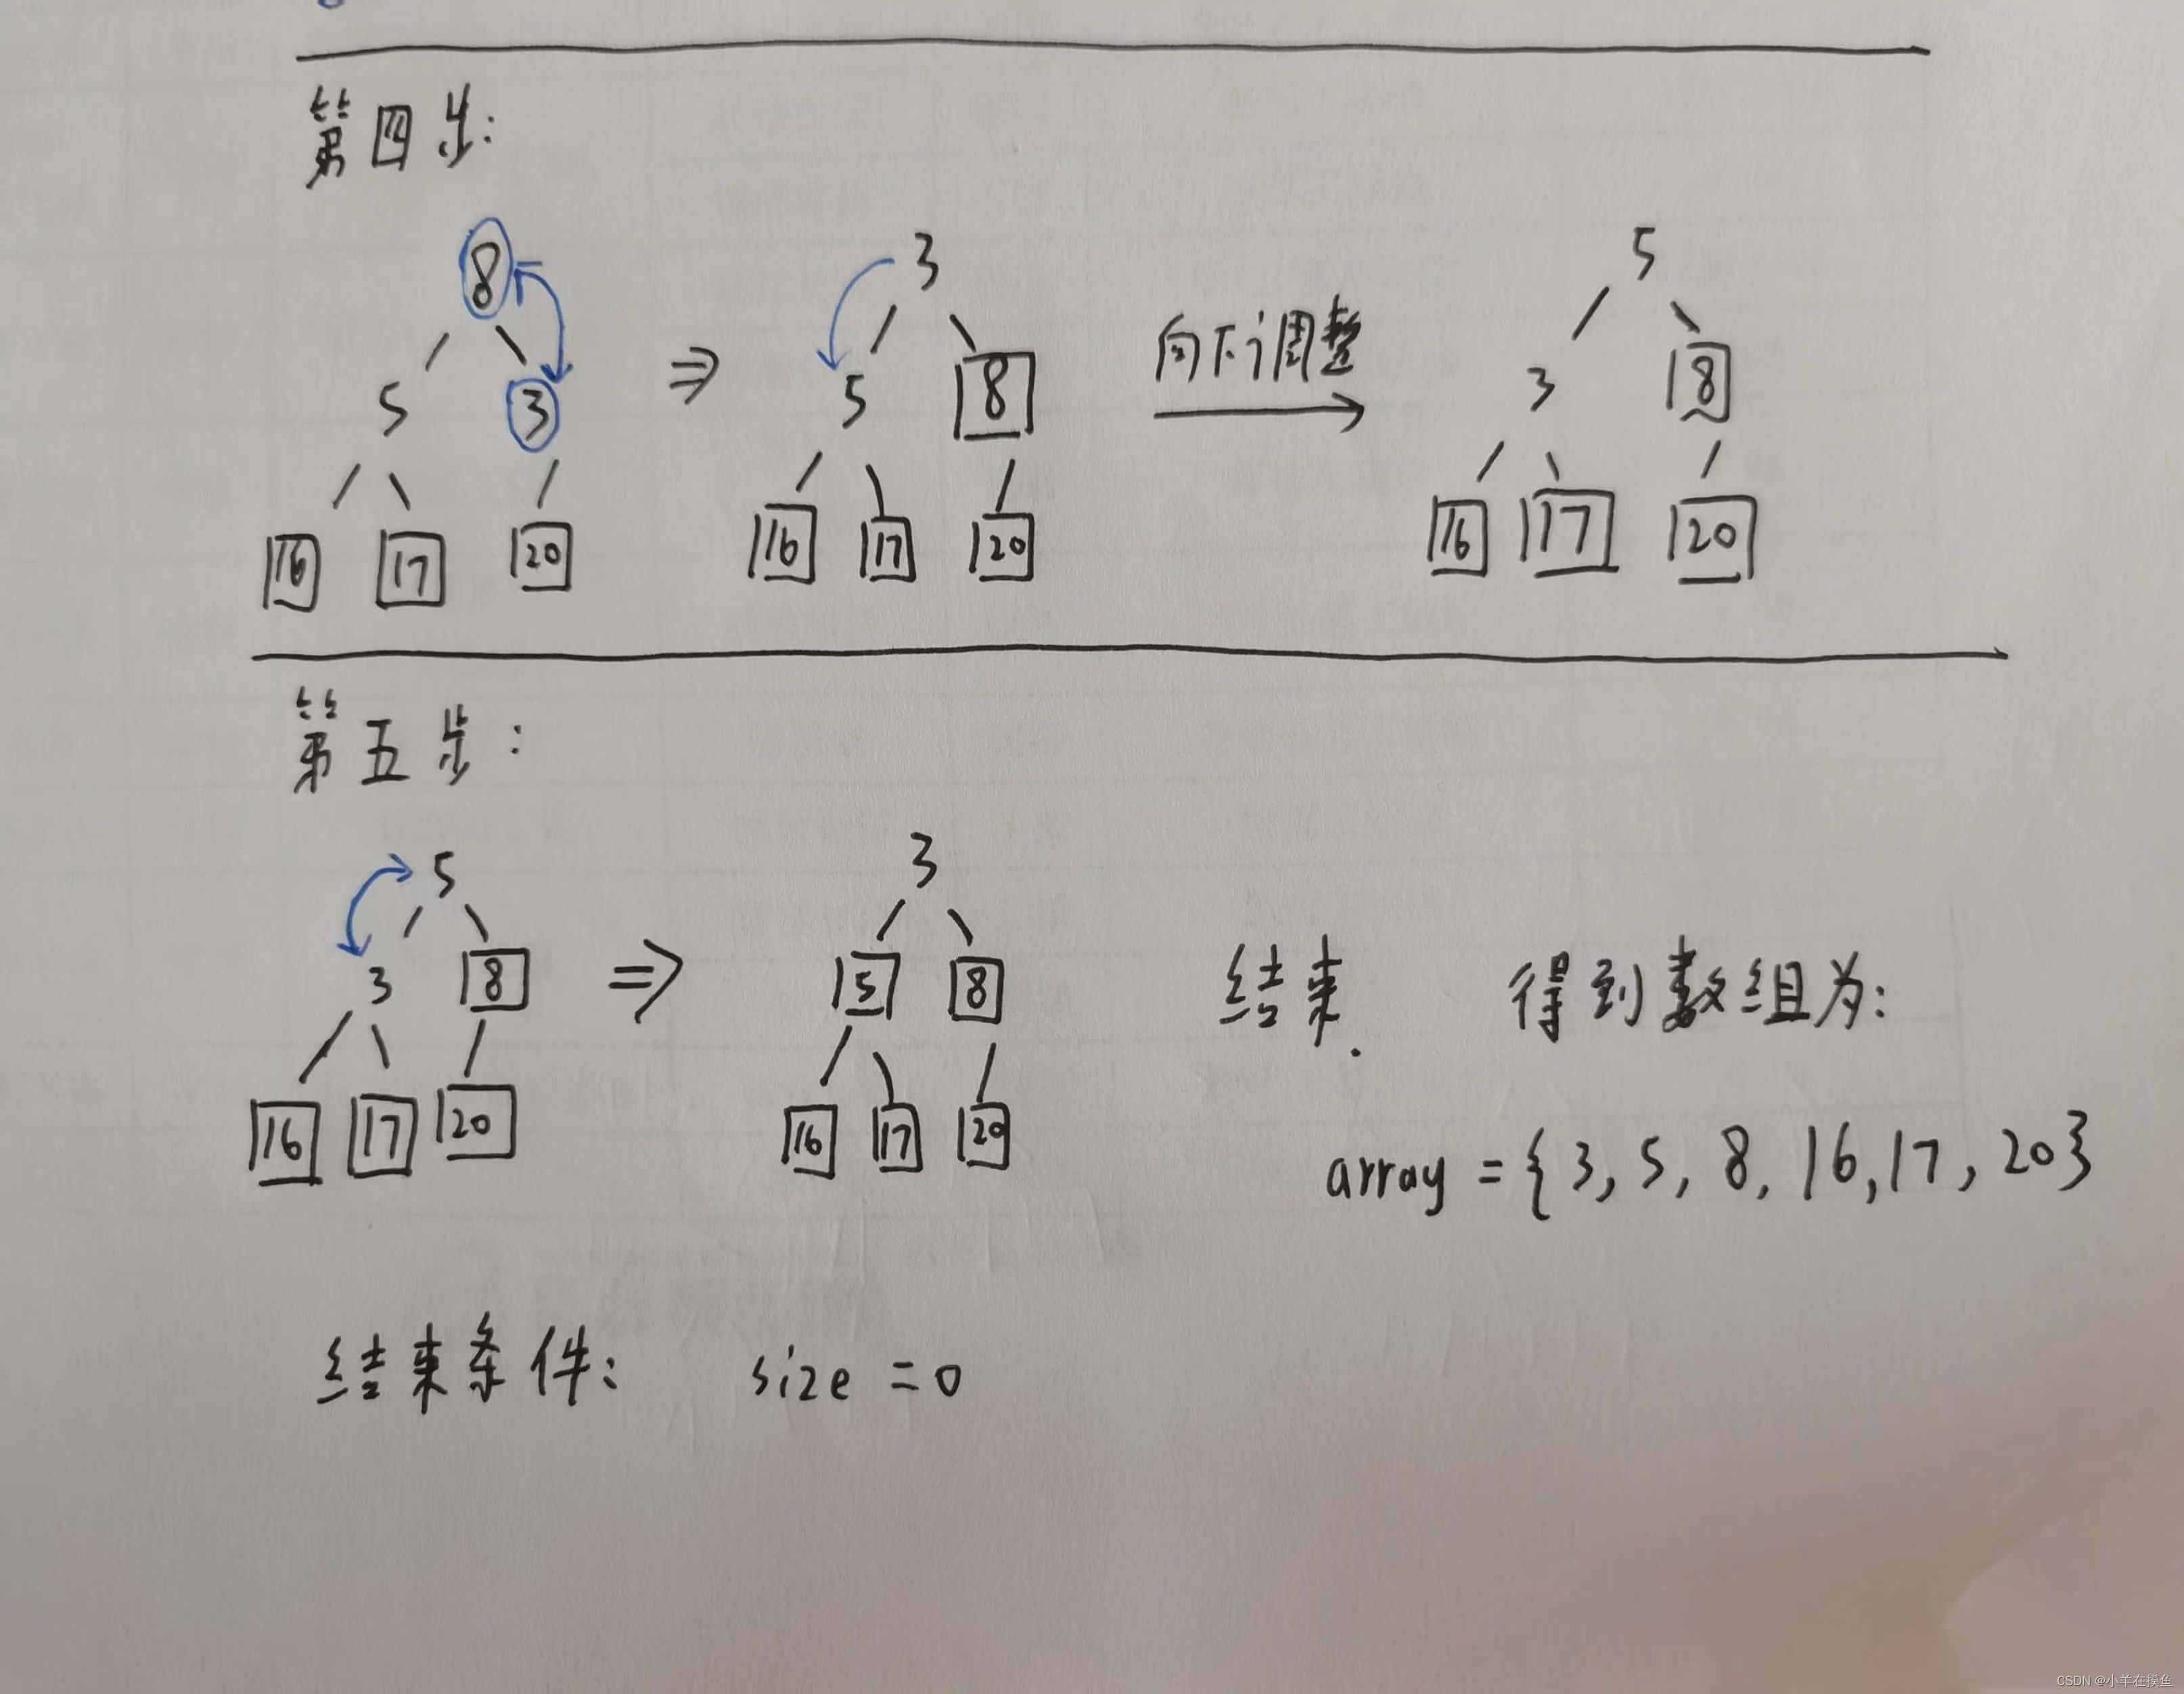 第四步:
8 3 5
⇒ 向下调整
5 3 5 8 3 8
16 17 20 16 17 20 16 17 20
第五步:
5 3
3 8 ⇒ 5 8 结束. 得到数组为:
16 17 20 16 17 20
array = {3, 5, 8, 16, 17, 20}
结束条件: size = 0
CSDN @小羊在摸鱼